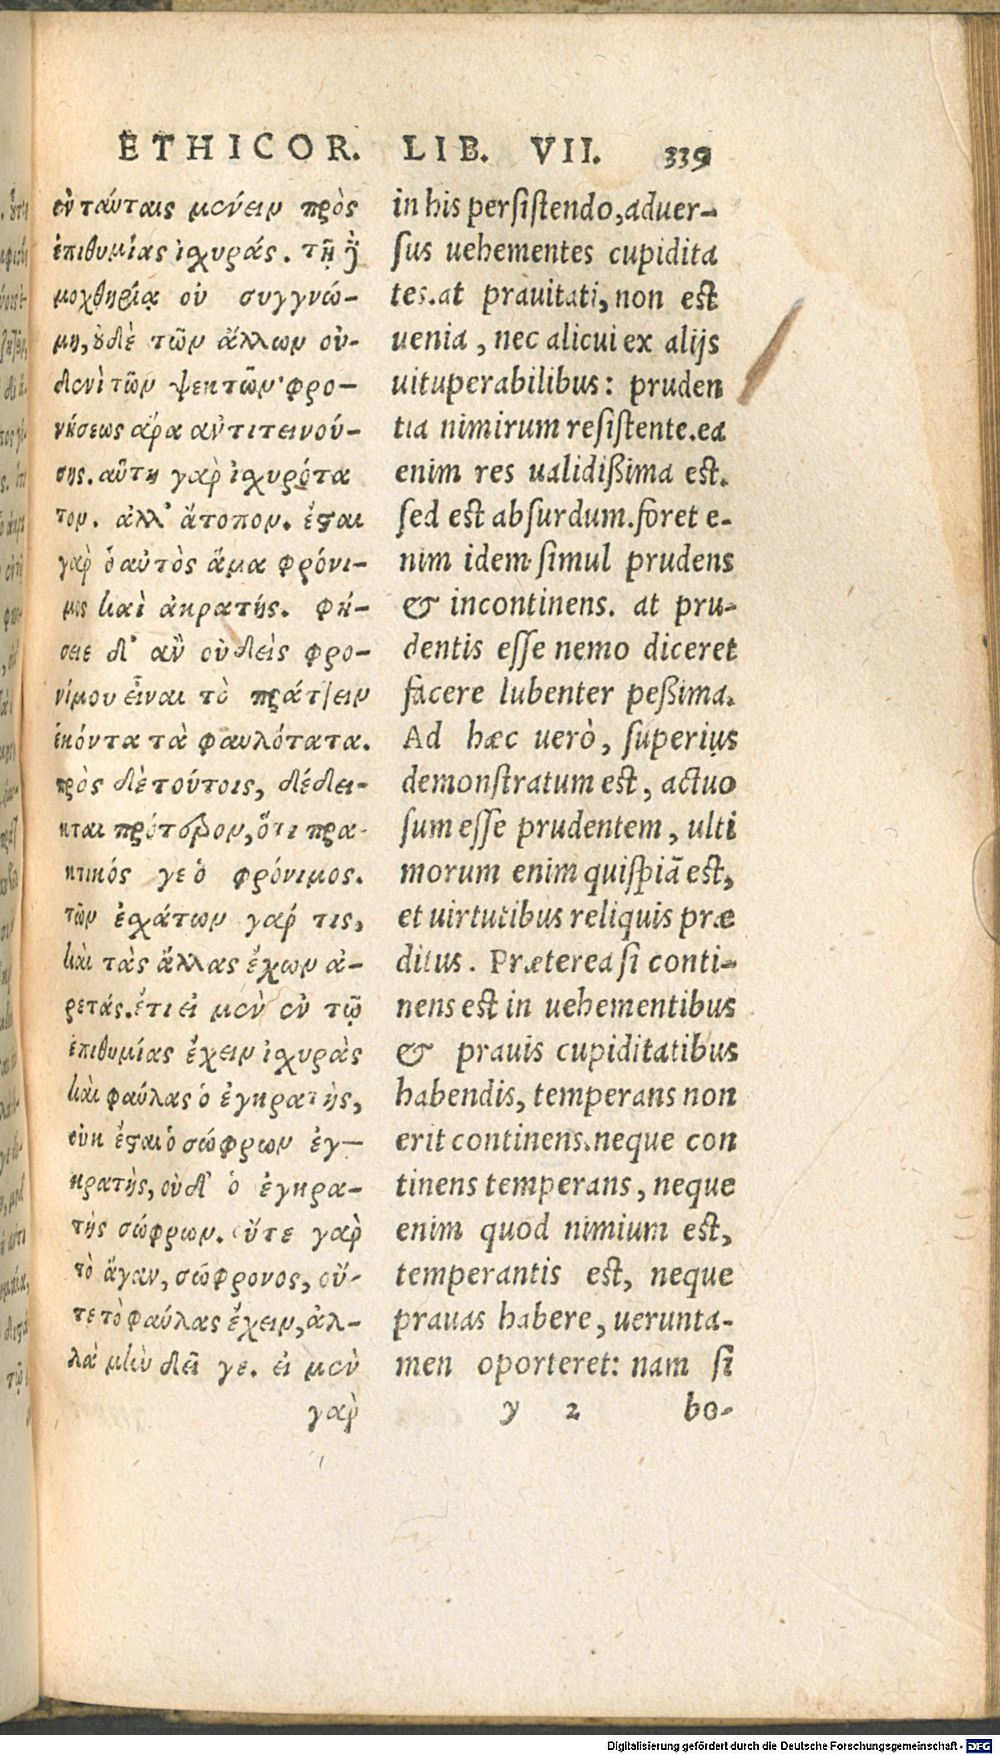 ETHICOR. LIB. VII. 339
ἐν ταύταις μένειν πρὸς
ἐπιθυμίας ἰσχυράς. τῇ δὲ
μοχθηρίᾳ οὐ συγγνώ-
μη, οὐδὲ τῶν ἄλλων οὐ-
δενὶ τῶν ψεκτῶν· φρο-
νήσεως ἄρα ἀντιτεινού-
σης. αὕτη γὰρ ἰσχυρότα
τον. ἀλλ' ἄτοπον. ἔσται
γὰρ ὁ αὐτὸς ἅμα φρόνι-
μος καὶ ἀκρατής. φή-
σειε δ' ἂν οὐδεὶς φρο-
νίμου εἶναι τὸ πράττειν
ἑκόντα τὰ φαυλότατα.
πρὸς δὲ τούτοις, δέδει-
κται πρότερον, ὅτι πρα-
κτικός γε ὁ φρόνιμος.
τῶν ἐσχάτων γάρ τις,
καὶ τὰς ἄλλας ἔχων ἀ-
ρετάς. ἔτι εἰ μὲν ἐν τῷ
ἐπιθυμίας ἔχειν ἰσχυρὰς
καὶ φαύλας ὁ ἐγκρατὴς,
οὐκ ἔσται ὁ σώφρων ἐγ-
κρατὴς, οὐδ' ὁ ἐγκρα-
τὴς σώφρων. οὔτε γὰρ
τὸ ἄγαν, σώφρονος, οὔ-
τε τὸ φαύλας ἔχειν, ἀλ-
λὰ μὴν δεῖ γε. εἰ μὲν
γὰρ
in his persistendo, aduer-
sus uehementes cupidita
tes. at prauitati, non est
uenia, nec alicui ex alijs
uituperabilibus: pruden
tia nimirum resistente. ea
enim res ualidißima est.
sed est absurdum. foret e-
nim idem simul prudens
& incontinens. at pru-
dentis esse nemo diceret
facere lubenter peßima.
Ad hæc uerò, superius
demonstratum est, actuo
sum esse prudentem, ulti
morum enim quispiã est,
et uirtutibus reliquis præ
ditus. Præterea si conti-
nens est in uehementibus
& prauis cupiditatibus
habendis, temperans non
erit continens. neque con
tinens temperans, neque
enim quod nimium est,
temperantis est, neque
prauas habere, uerunta-
men oporteret: nam si
y 2 bo-
Digitalisierung gefördert durch die Deutsche Forschungsgemeinschaft - DFG